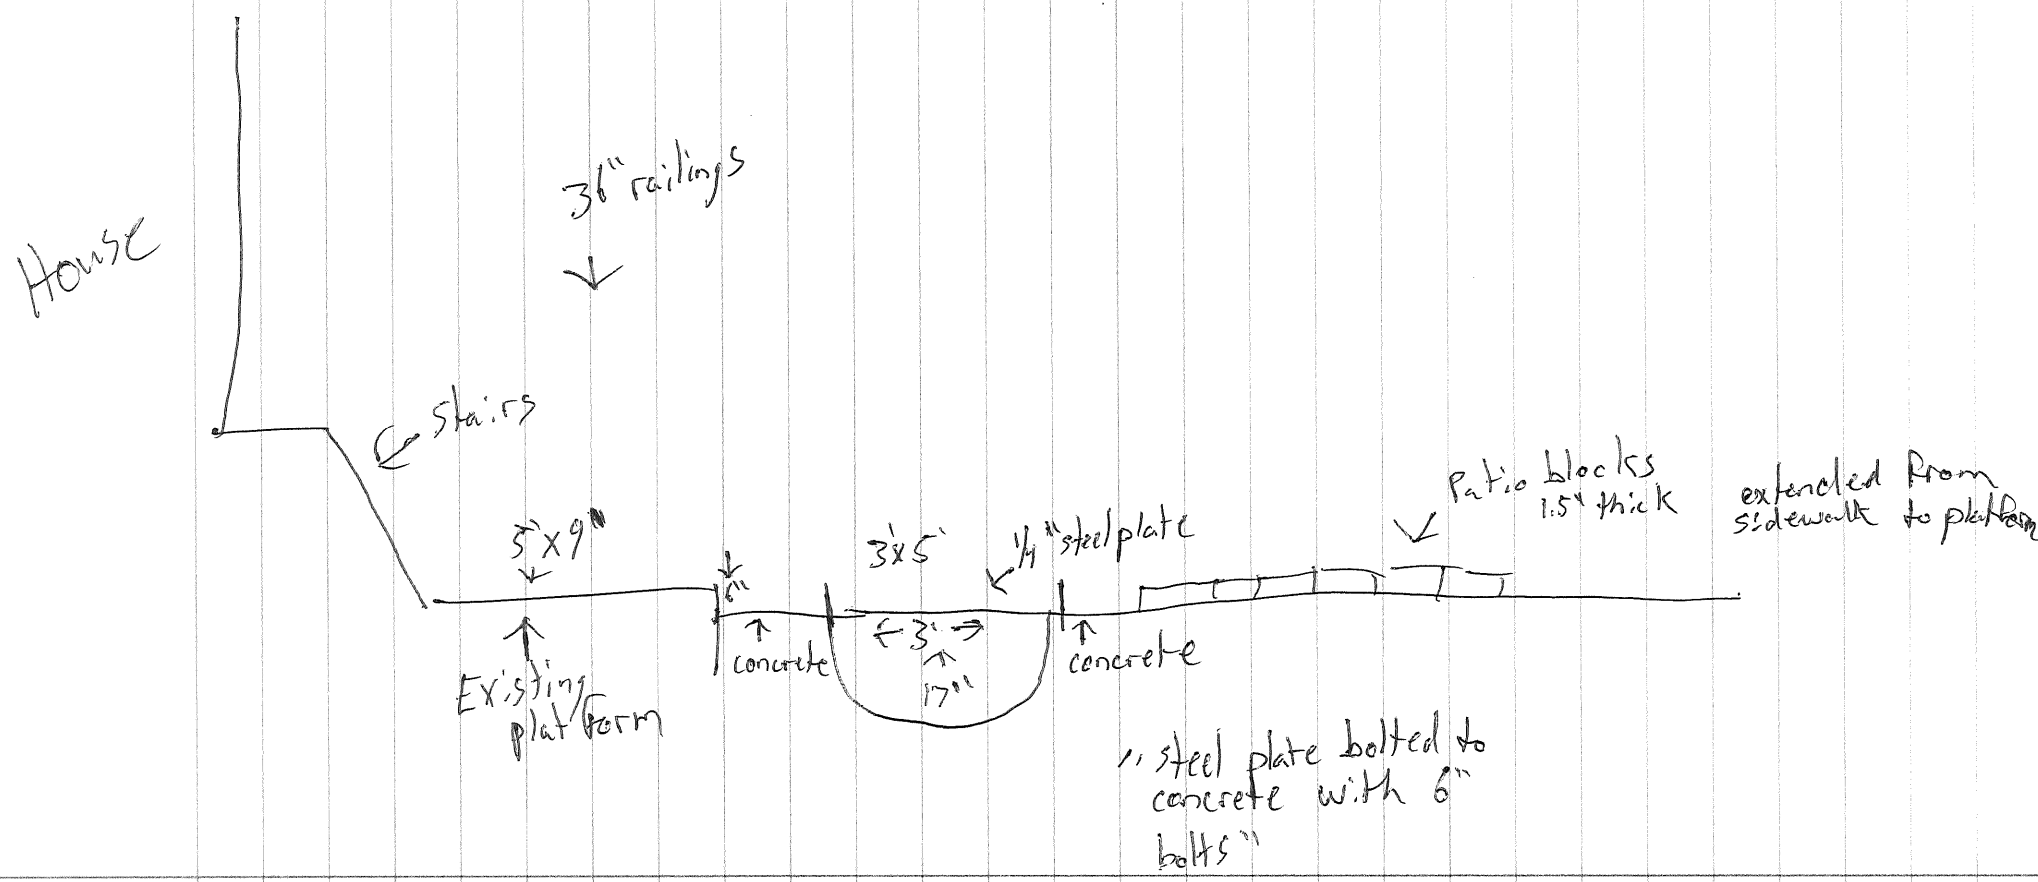 House
36" railings
stairs
5' x 9"
Existing
platform
6"
concrete
3' x 5'
1/4" steel plate
3'
17"
concrete
Patio blocks
1.5" thick
extended from
sidewalk to platform
"steel plate bolted to
concrete with 6"
bolts"